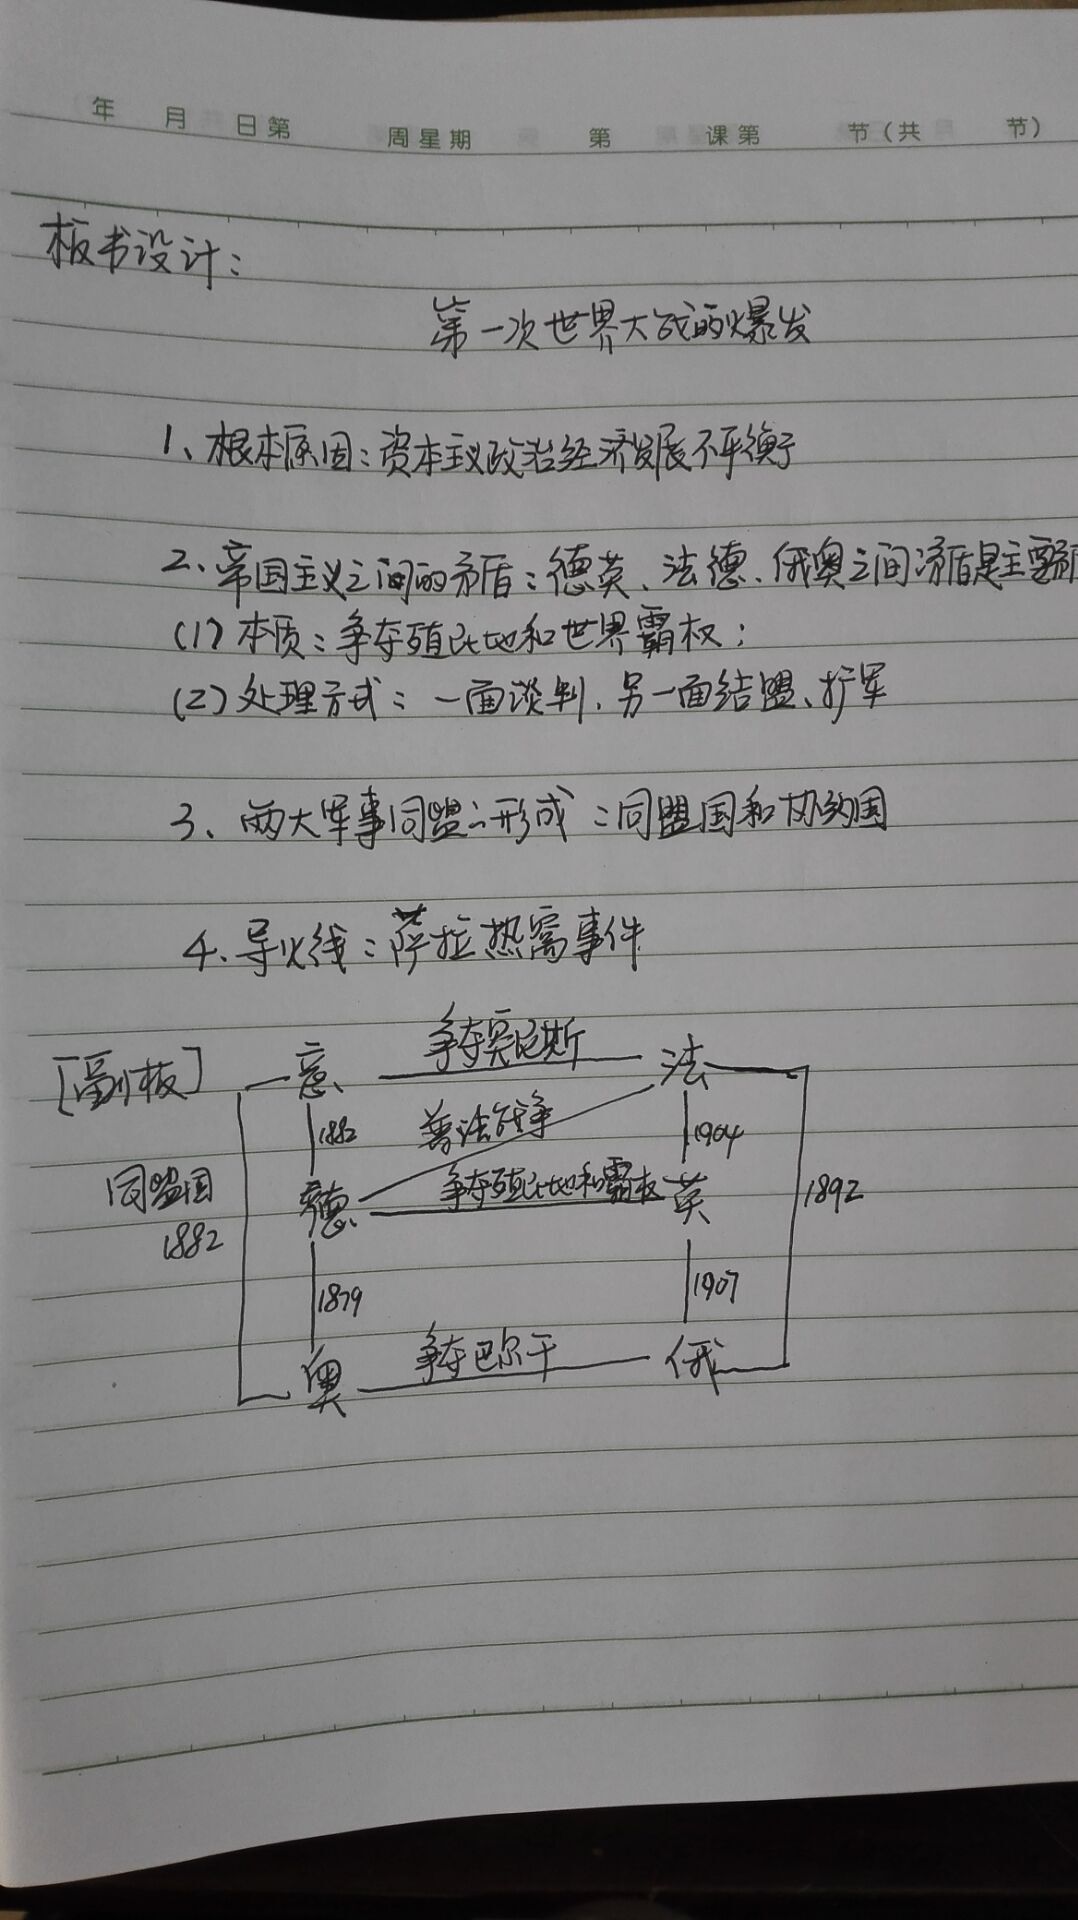 年 月 日第 周星期 第 课第 节(共 节)
板书设计:
第一次世界大战的爆发
1、根本原因:资本主义政治经济发展不平衡
2、帝国主义之间的矛盾:德英、法德、俄奥之间矛盾是主要矛盾
(1)本质:争夺殖民地和世界霸权;
(2)处理方式:一面谈判,另一面结盟、扩军
3、两大军事同盟的形成:同盟国和协约国
4、导火线:萨拉热窝事件
[副板] 意 争夺突尼斯 法
1882 普法战争 1904
同盟国 德 争夺殖民地和霸权 英 1892
1882
1879 1907
奥 争夺巴尔干 俄